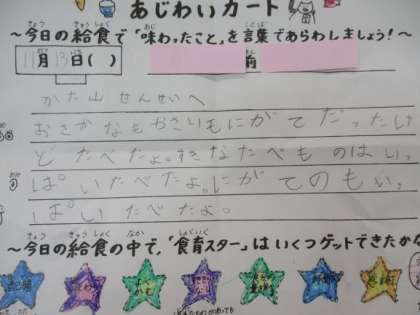 あじわいカート
～今日の給食で「味わったこと」を言葉であらわしましょう！～
11月13日( )
かた山せんせいへ
おさかなもやさいもにがてだったけ
どたべたよ。すきなたべものはいっ
ぱいたべたよ。にがてのもいっ
ぱいたべたよ。
～今日の給食の中で、「食育スター」はいくつゲットできたかな